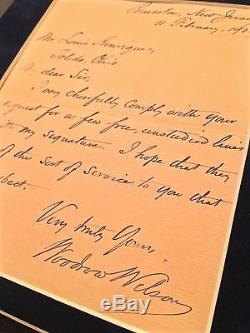 Princeton, New Jersey
11 February, 190
Mr. Louis
Toledo, Ohio
My dear Sir,
I very cheerfully comply with your
request for a few free, unstudied lines
with my signature. I hope that they
of the sort of service to you that
expect.
Very truly Yours,
Woodrow Wilson